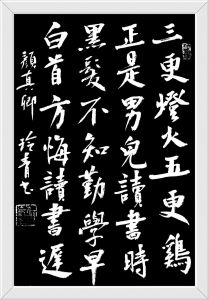 三更燈火五更鷄
正是男兒讀書時
黑髮不知勤學早
白首方悔讀書遲
顔真卿